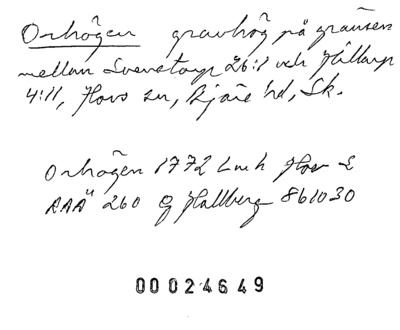 Orhögen gravhög på gränsen
mellan Svenstorp 26:1 och Hållarp
4:11, Hovs sn, Bjäre hd, Sk.
Orhögen 1772 Lmh Hov
RAÄ 260 G Hallberg 861030
00024649